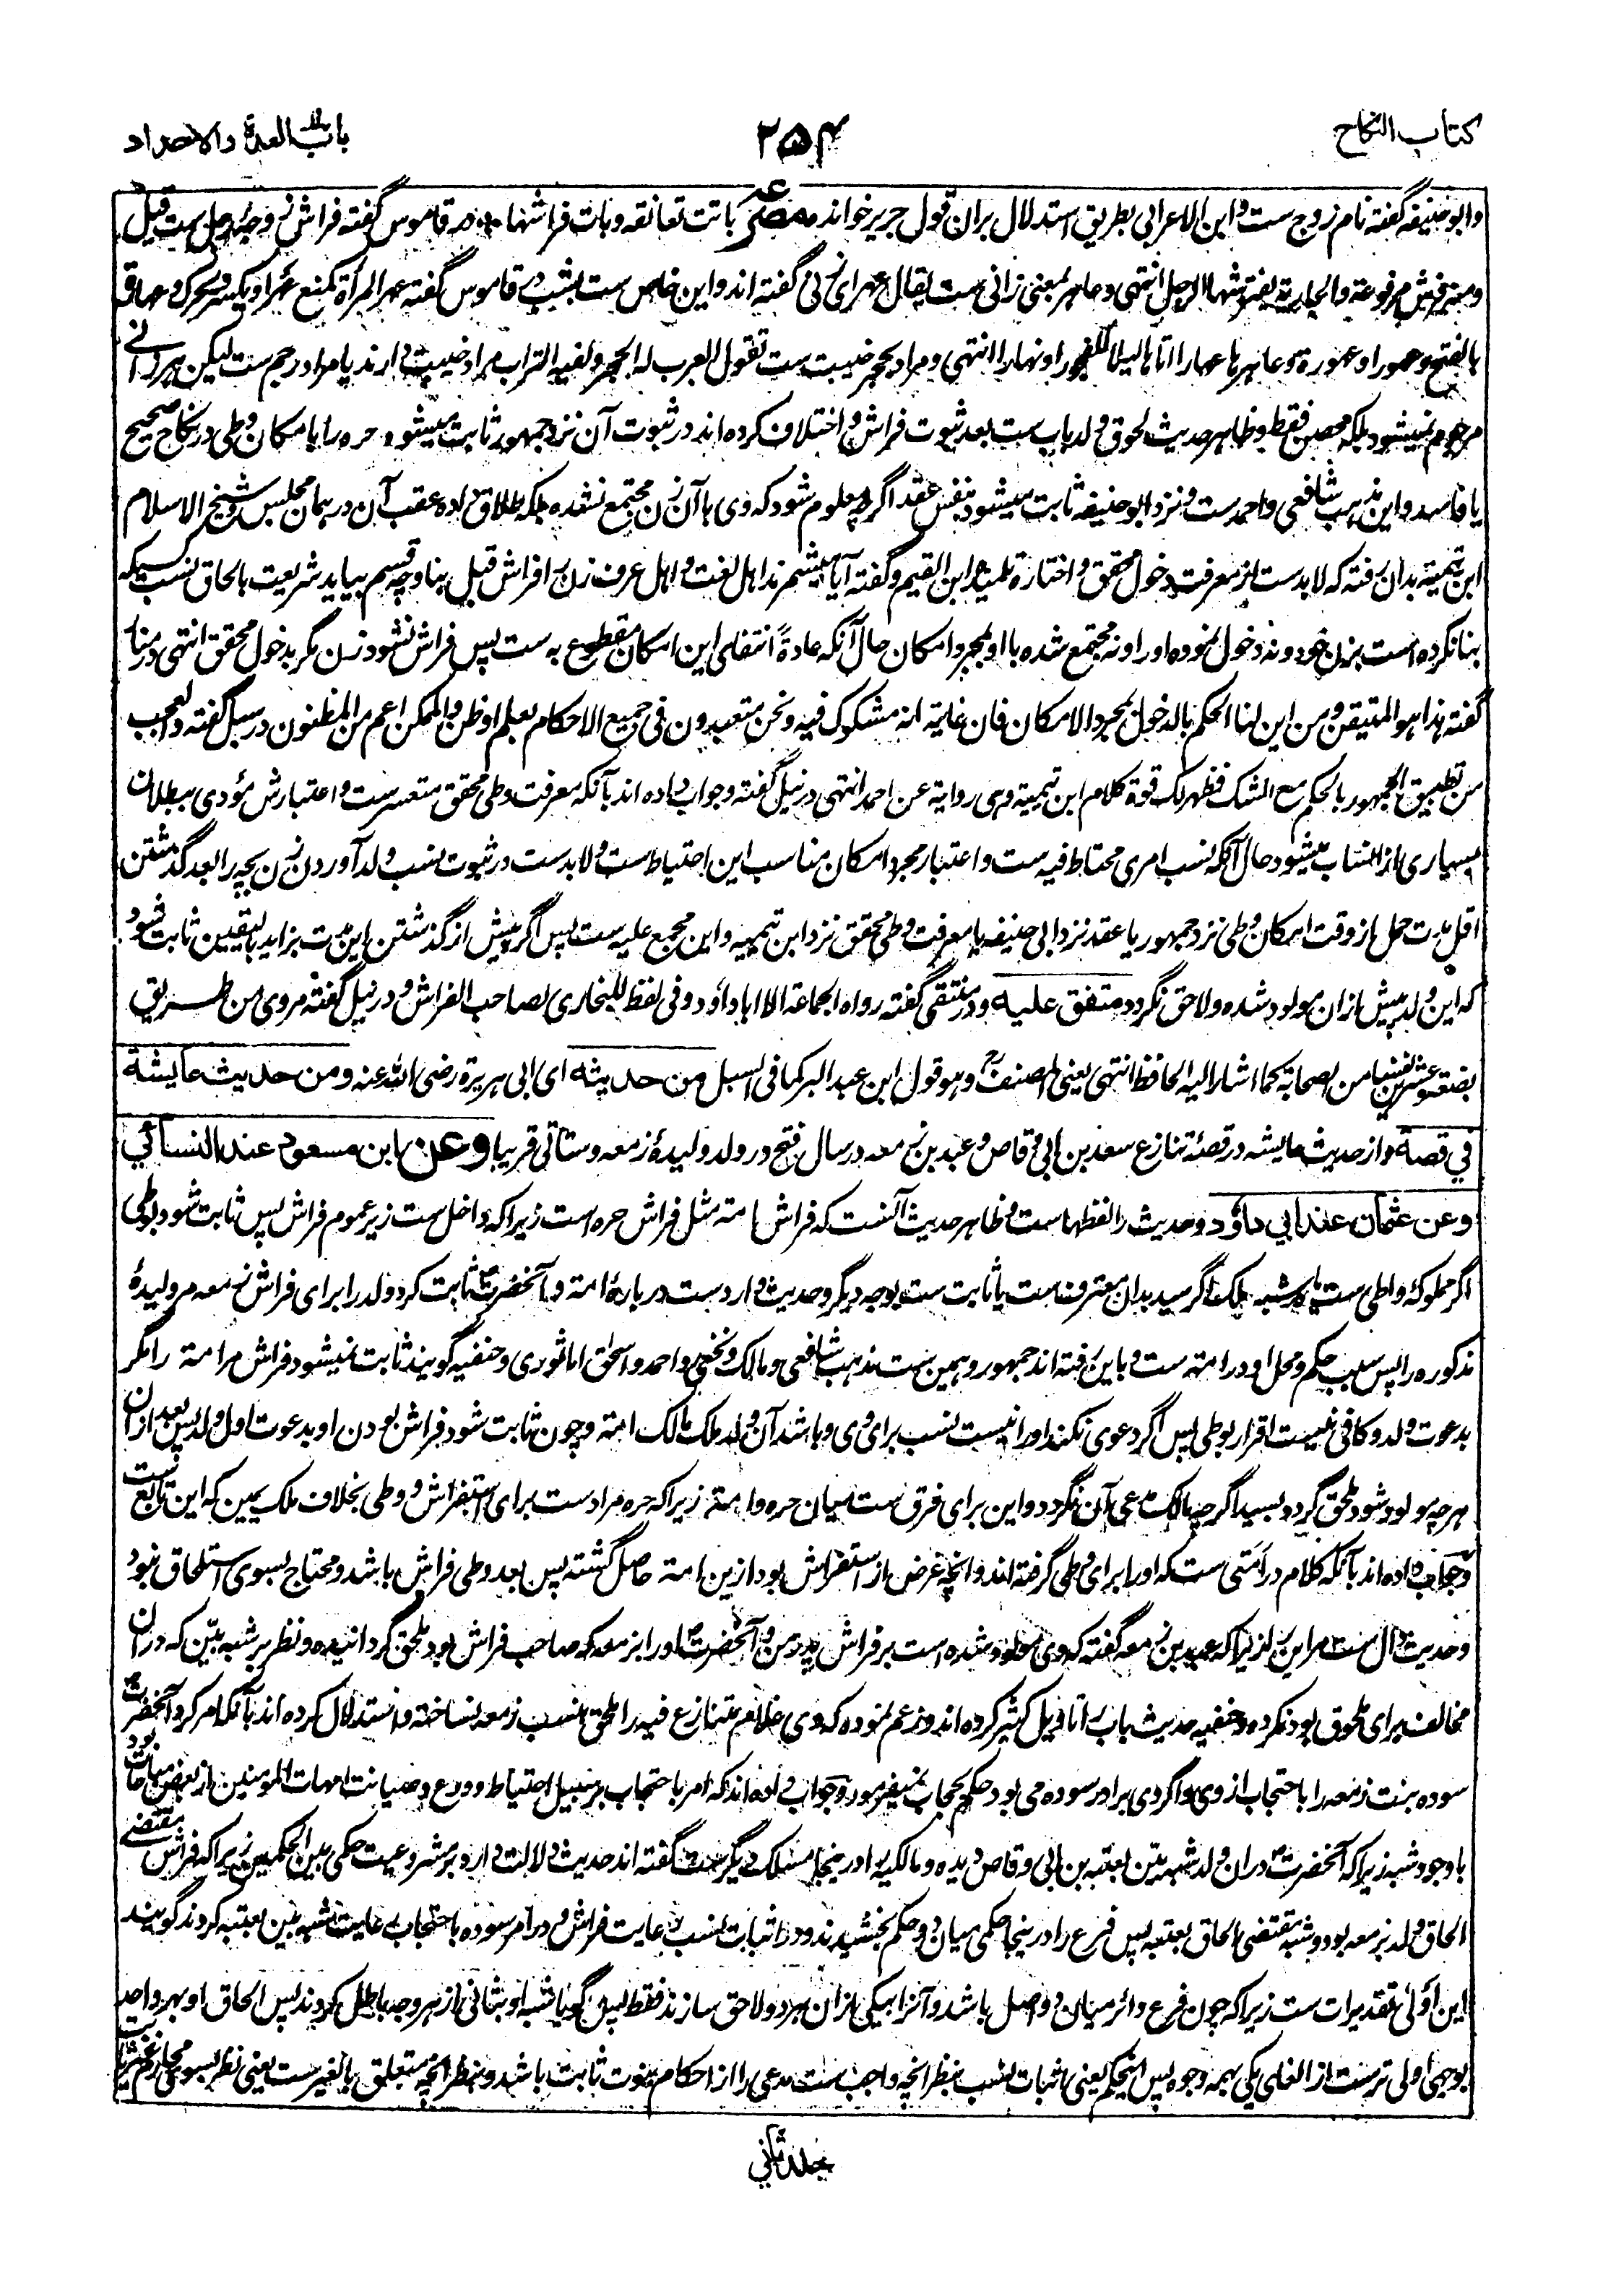 كتاب النكاح
۲۵۴
باب العدة والاحداد
وابو حنيفه گفته نام زوج ست و ابن الاعرابى بطريق استدلال بران قول جرير خوانده مصرع باتت تعانقه وبات فراشها ؞ در قاموس گفته فراش زوجهٔ رجل ست قيل
ومنه فرش مرفوعة والجارية يفترشها الرجل انتهى وعاهر بمعنى زانى ست يقال عهر اى زنى گفته اند و اين خاص ست بشب در قاموس گفته عهر المرأة كمنع عهرا ويكسر ويحرك وعهارة
بالفتح وعهورا وعهورة وعاهرها عهارا اتاها ليلا للفجور او نهارا انتهى ومراد بحجر خيبت ست تقول العرب له الحجر وبفيه التراب مراد خيبت دارند يا مراد رجم ست ليكن هر زانى
مرجوم نميشود بلكه محصن فقط وظاهر حديث لحوق ولد باب ست بعد ثبوت فراش و اختلاف كرده اند در ثبوت آن نزد جمهور ثابت ميشود حره را بامكان وطى در نكاح صحيح
يا فاسد و اين مذهب شافعى و احمد ست و نزد ابو حنيفه ثابت ميشود بنفس عقد اگرچه معلوم شود كه وى با آن زن مجتمع نشده بلكه طلاق داده عقب آن در همان مجلس و شيخ الاسلام
ابن تيميه بدان رفته كه لا بدست از معرفت دخول محقق واختاره تلميذه ابن القيم و گفته آيا ميشمرند اهل لغت و اهل عرف زن را فراش قبل بنا و چه قسم بيايد شريعت بالحاق نسب كسيكه
بنا نكرده است بزن خود و نه دخول نموده او را و نه مجتمع شده با او بمجرد امكان حال آنكه عادةً انتفاى اين امكان مقطوع به ست پس فراش نشود زن مگر بدخول محقق انتهى در منار
گفته هذا هو المتيقن ومن اين لنا الحكم بالدخول بمجرد الامكان فان غايته انه مشكوك فيه ونحن متعبدون فى جميع الاحكام بعلم او ظن والممكن اعم من المظنون در سبل گفته والعجب
من تطبيق الجمهور بالحكم مع الشك فظهر لك قوة كلام ابن تيمية وهى رواية عن احمد انتهى در نيل گفته و جواب داده اند بآنكه معرفت وطى محقق متعسر ست و اعتبارش مؤدى ببطلان
بسيارى از انساب ميشود حال آنكه نسب امرى محتاط فيه ست و اعتبار مجرد امكان مناسب اين احتياط ست و لا بد ست در ثبوت نسب ولد آوردن زن بچه را بعد گذشتن
اقل مدت حمل از وقت امكان وطى نزد جمهور يا عقد نزد ابى حنيفه يا معرفت وطى محقق نزد ابن تيميه و اين مجمع عليه ست پس اگر پيش از گذشتن اين مدت بزايد باليقين ثابت شود
كه اين ولد پيش ازان مولود شده ولاحق نگردد متفق عليه و در منتقى گفته رواه الجماعة الا ابا داود وفى لفظ للبخارى لصاحب الفراش و در نيل گفته مروى من طريق
بضعة وعشرين نفسا من الصحابة كما اشار اليه الحافظ انتهى يعنى المصنف رح وهو قول ابن عبد البر كما فى السبل من حديثه اى ابى هريرة رضى الله عنه ومن حديث عايشة
في قصة و از حديث عايشه در قصهٔ تنازع سعد بن ابى وقاص و عبد بن زمعه در سال فتح در ولد وليدهٔ زمعه وستاتى قريبا وعن ابن مسعود عند النسائي
وعن عثمان عند ابي داؤد و حديث را لفظهاست و ظاهر حديث آنست كه فراش امة مثل فراش حره است زيرا كه داخل ست زير عموم فراش پس ثابت شود بوطى
اگر مملوكهٔ واطى ست يا بشبه ملك اگر سيد بدان معترف ست يا ثابت ست بوجه ديگر و حديث وارد ست در بارهٔ امة و آنحضرت ثابت كرد ولد را براى فراش زمعه مر وليدهٔ
مذكوره را پس سبب حكم و محل او در امة ست و باين رفته اند جمهور و همين ست مذهب شافعى و مالك و نخعى و احمد و اسحق اما ثورى و حنفيه گويند ثابت نميشود فراش مر امة را مگر
بدعوت ولد و كافى نيست اقرار بوطى پس اگر دعوى نكند او را نيست نسب براى وى و باشد آن ولد ملك مالك امة و چون ثابت شود فراش بودن او بدعوت اول ولد پس بعد ازان
هر چه مولود شود ملحق گردد بسيد اگر چه مالك مدعى آن نگردد و اين براى فرق ست ميان حره و امة زيرا كه حره مراد ست براى استفراش و وطى بخلاف ملك يمين كه اين تابع ست
وجواب داده اند بآنكه كلام در اَمَتى ست كه او را براى وطى گرفته اند و آنچه غرض از استفراش بود ازين امة حاصل گشته پس بعد وطى فراش باشد و محتاج بسوى استلحاق نبود
و حديث دال ست مر اين را زيرا كه عبد بن زمعه گفته كه وى مولود شده است بر فراش پدر من و آنحضرت او را بزمعه كه صاحب فراش بود ملحق گردانيده و نظر بر شبه بيّن كه دران
مخالف براى ملحوق بود نكرده و حنفيه حديث باب را تاويل كثير كرده اند و زعم نموده كه وى غلام متنازع فيه را ملحق بنسب زمعه نساخته و استدلال كرده اند بآنكه امر كرد آنحضرت
سوده بنت زمعه را باحتجاب از وى و اگر وى برادر سوده مى بود حكم بحجاب نميفرمود و جواب داده اند كه امر باحتجاب بر سبيل احتياط و ورع و صيانت امهات المومنين از بعض مباحات بود
باوجود شبه زيرا كه آنحضرت دران ولد شبه بيّن بعتبه بن ابى وقاص ديده و مالكيه را درينجا مسلك ديگر ست گفته اند حديث دلالت دارد بر مشروعيت حكمى بين الحكمين زيرا كه فراش مقتضى
الحاق ولد بزمعه بود و شبه مقتضى الحاق بعتبه پس فرع را درينجا حكمى ميان دو حكم بخشيدند و در اثبات نسب رعايت فراش و در امر سوده باحتجاب رعايت شبه بيّن بعتبه كردند گويند
اين اولى تقديرات ست زيرا كه چون فرع دائر ميان دو اصل باشد و آنرا بيكى ازان هر دو لاحق سازند فقط پس گويا شبه او بثانى از هر وجه باطل كردند پس الحاق او بهر واحد
بوجهى اولى تر ست از الغاى يكى بهمه وجوه پس اين حكم يعنى اثبات نسب بنظر آنچه واجب ست مدعى را از احكام بنوت ثابت باشد و بنظر آنچه متعلق بالغير ست يعنى نظر بسوى محارم
جلد ثاني